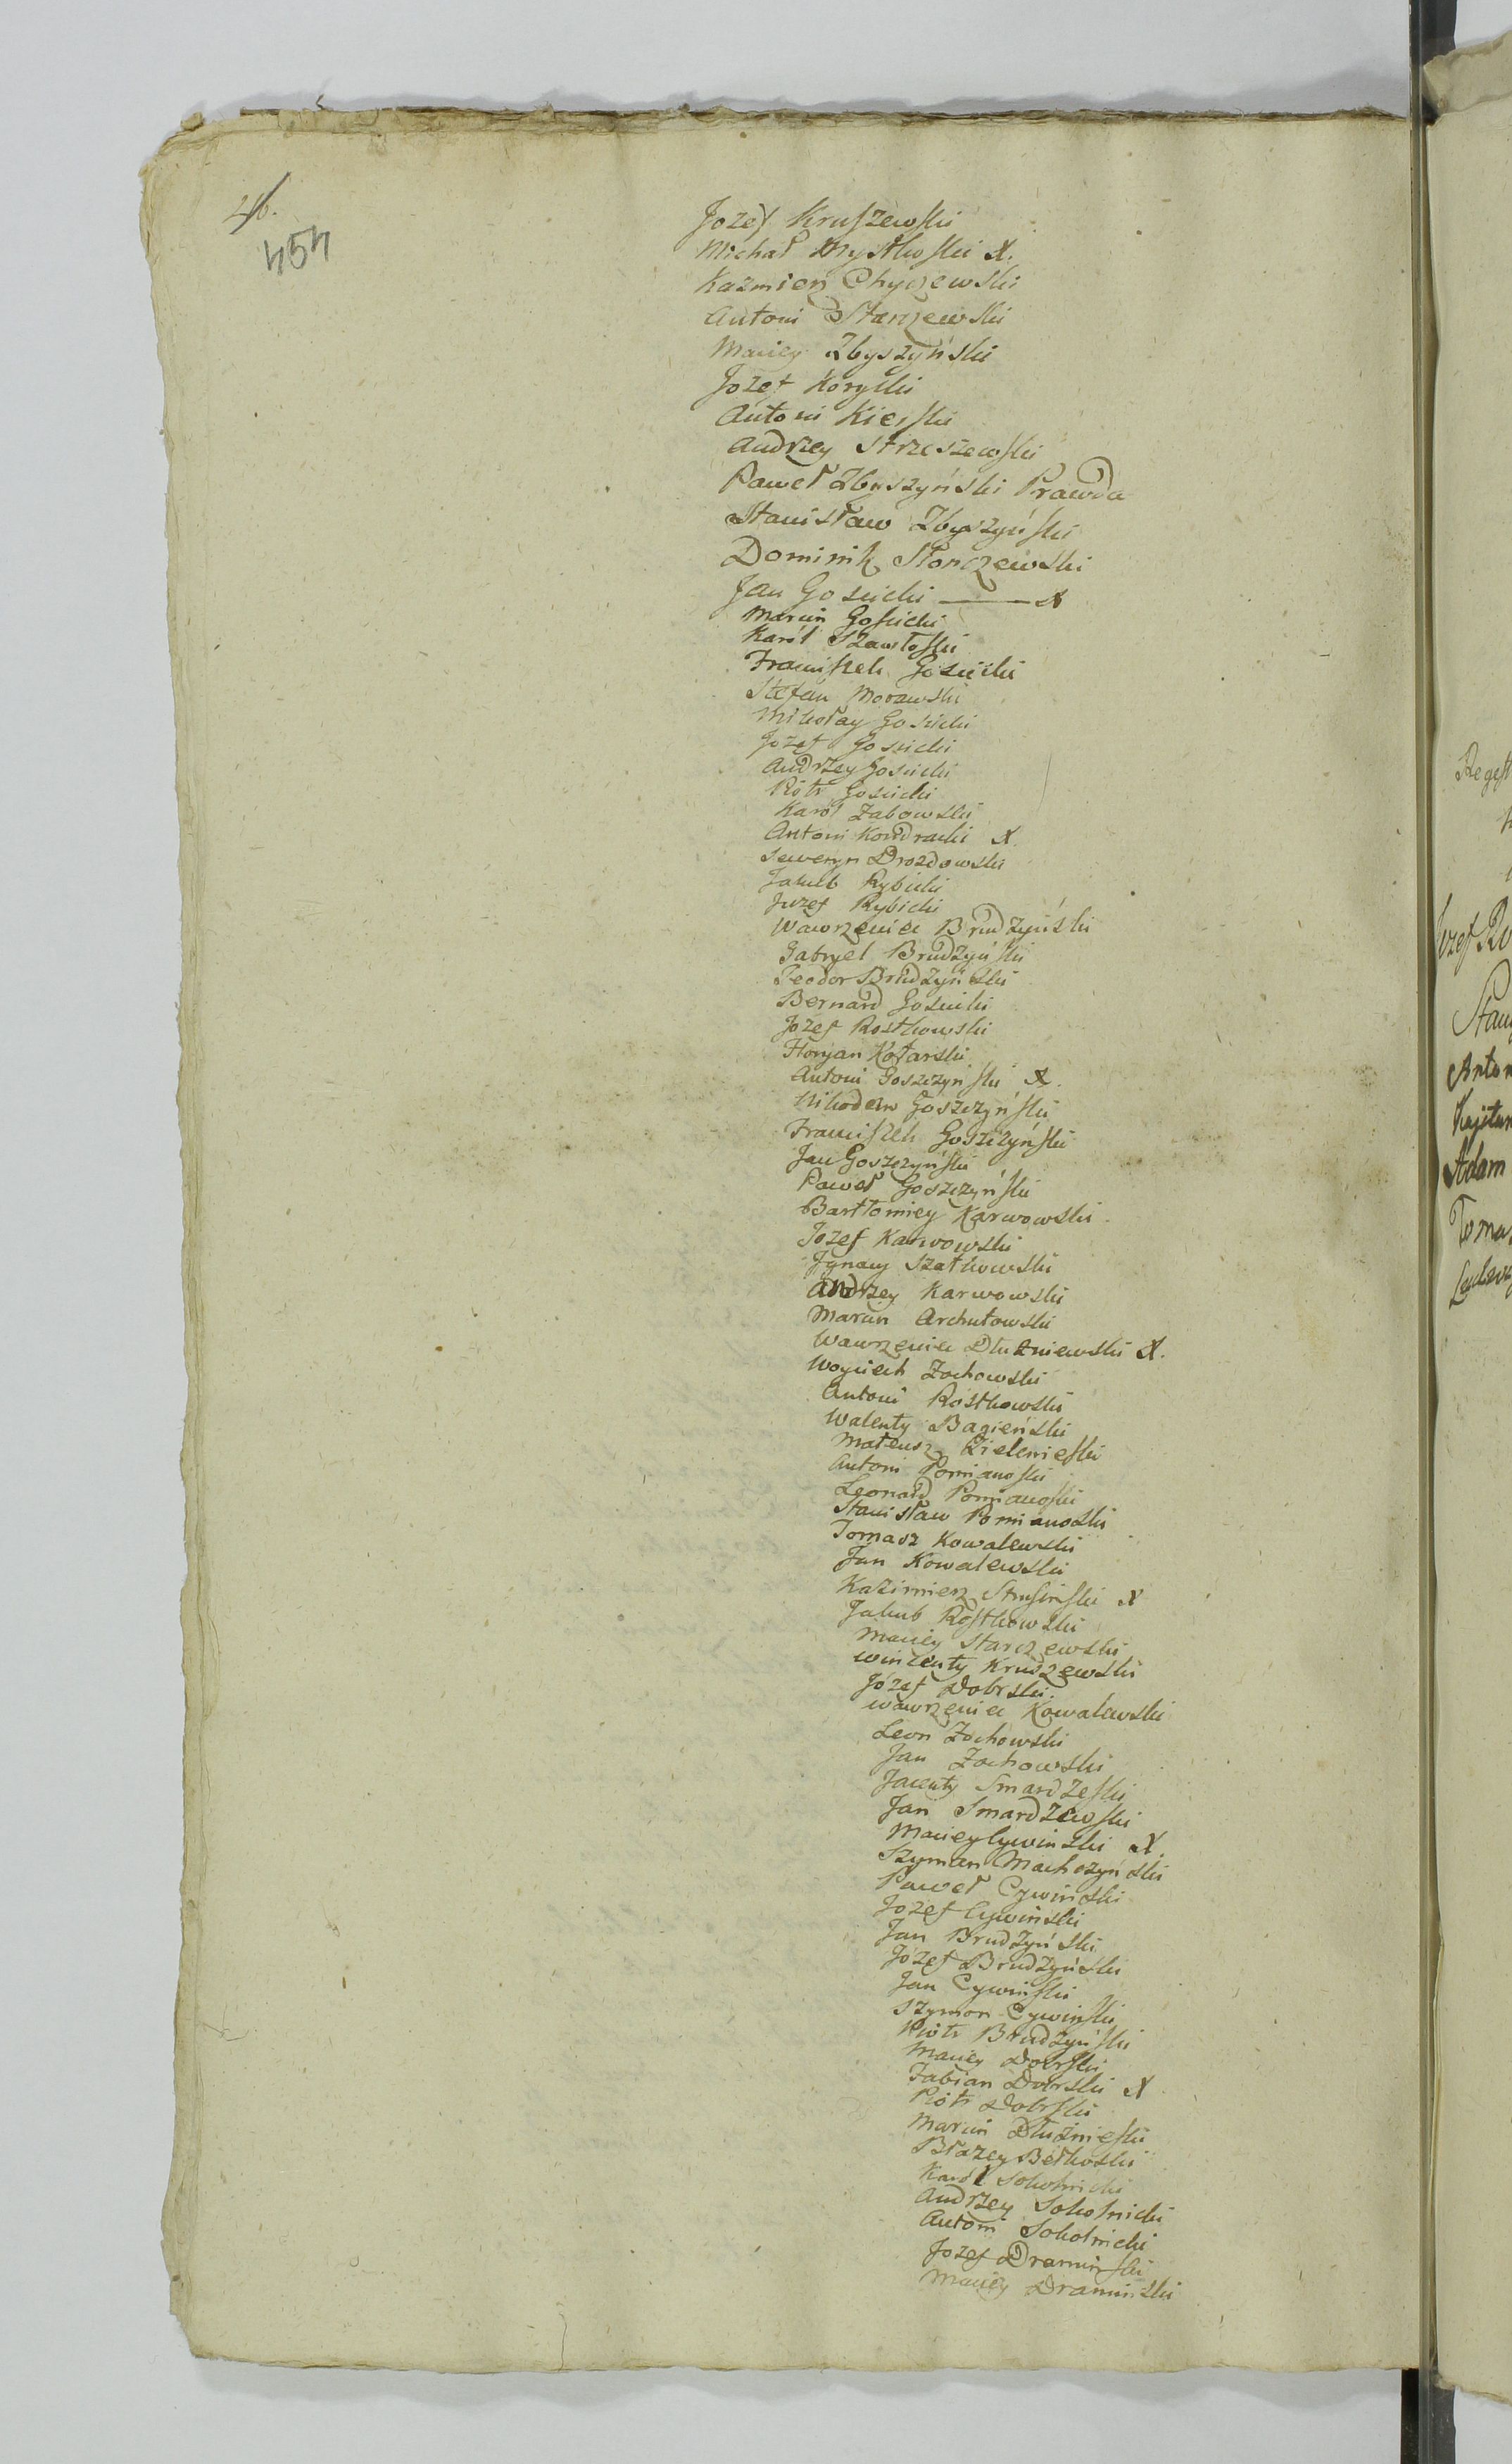 26.
454
Jozef Kruszewski
Michał Mystkoski X.
Kazmierz Chyczewski
Antoni Starzewski
Maciey Zbyszyński
Jozef Koryski
Antoni Kierski
Andrzey Strzeszewski
Paweł Zbyszyński Prawda
Stanisław Zbyszyński
Dominik Słonczewski
Jan Goscicki X
Marcin Goscicki
Karol Szawłoski
Franciszek Goscicki
Stefan Morawski
Mikołay Goscicki
Jozef Goscicki
Andrzey Goscicki
Piotr Goscicki
Karol Zabowski
Antoni Kondracki X.
Seweryn Drozdowski
Jakub Rybicki
Juzef Rybicki
Wawrzeniec Brudzyński
Gabryel Brudzyński
Teodor Brudzyński
Bernard Goscicki
Józef Rostkowski
Floryan Kotarski
Antoni Goszczyński X.
Nikodem Goszczyński
Franciszek Goszczyński
Jan Goszczyński
Paweł Goszczyński
Bartłomiey Karwowski.
Jozef Karwowski
Jgnacy Szatkowski
Andrzey Karwowski
Marcin Archutowski
Wawrzeniec Dłużniewski X.
Woyciech Zochowski
Antoni Rostkowski
Walenty Bagieński
Mateusz Zielenieski
Antoni Pomianoski
Leonard Pomianoski
Stanisław Pomianoski
Tomasz Kowalewski
Jan Kowalewski
Kazimierz Strusinski X
Jakub Rostkowski
Maciey Starczewski
Wincenty Kruszewski
Józef Dobrski.
Wawrzeniec Kowalewski
Leon Zochowski
Jan Zochowski
Jacenty Smardzeski
Jan Smardzewski
Maciey Cywinski X.
Szyman Machczyński
Paweł Cywinski
Jozef Cywiński
Jan Brudzyński
Józef Brudzyński
Jan Cywiński
Szymon Cywinski
Piotr Brudzyński
Maciey Dobrski
Fabian Dobrski X
Piotr Dobrski
Marcin Dłużnieski
Błazey Bełkoski
Karol Sokolnicki
Andrzey Sokolnicki
Antoni Sokolnicki
Jozef Draminski
Maciey Draminski
Stan
Anton
Kajetan
Adam
Toma